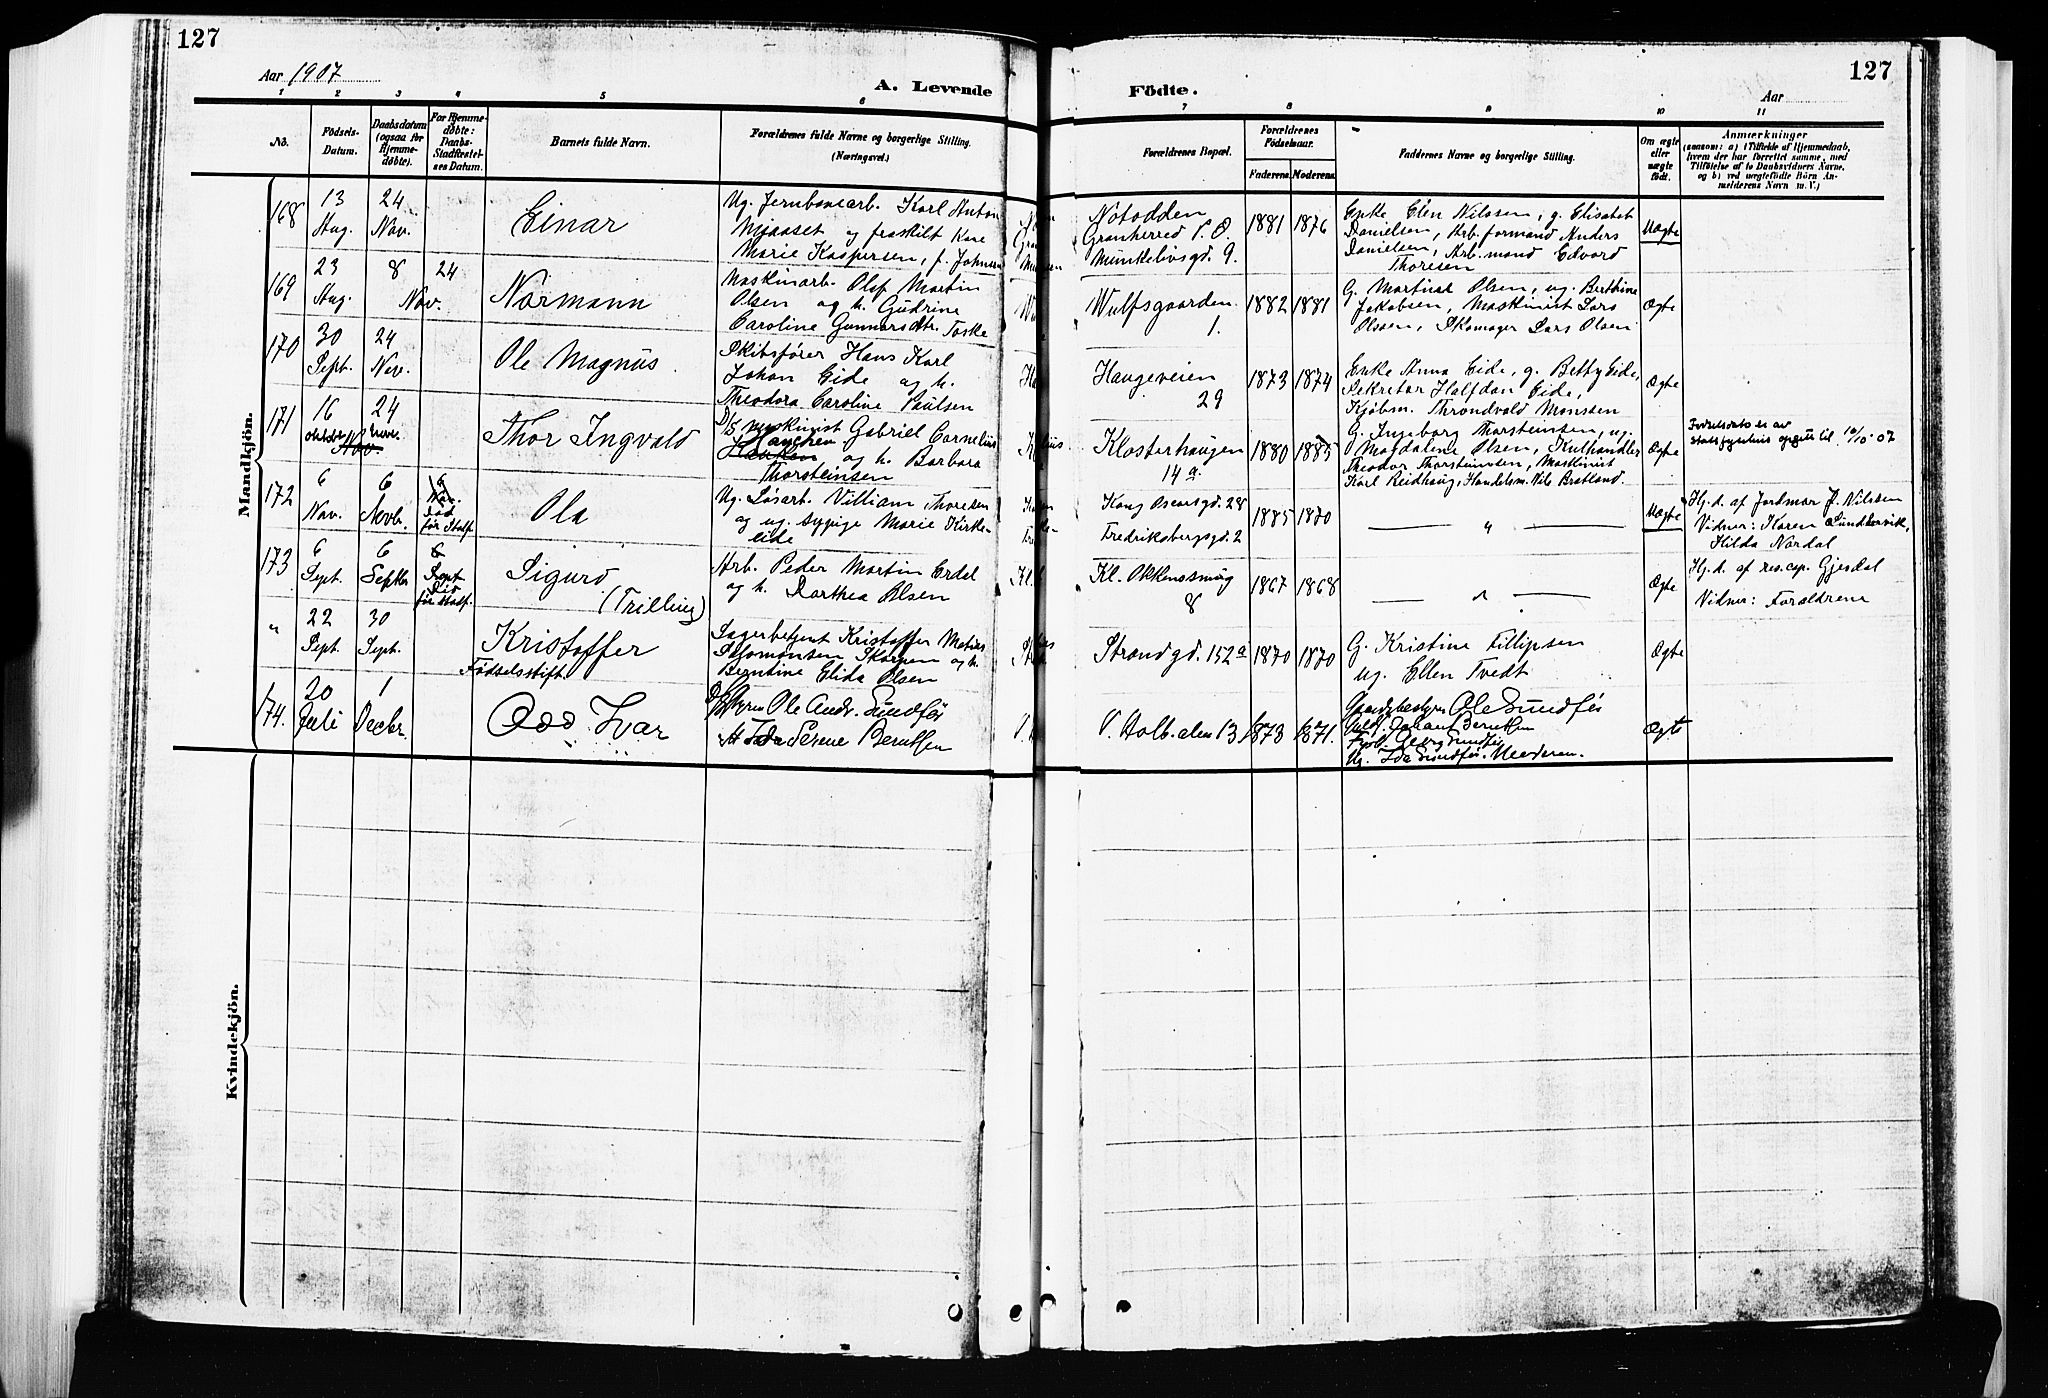 127
127
Aar 1907
A. Levende
Födte.
Aar
1 2 3 4 5 6 7 8 9 10 11
No.
Födsels-Datum.
Daabsdatum (ogsaa for Hjemme-döbte).
For Hjemme-döbte: Daabs-Stadfæstel-ses Datum.
Barnets fulde Navn.
Forældrenes fulde Navne og borgerlige Stilling.
(Næringsvei.)
Forældrenes Bopæl.
Forældrenes Födselsaar.
Faderens. Moderens.
Faddernes Navne og borgerlige Stilling.
Om ægte eller uægte födt.
Anmærkninger
(saasom: a) i Tilfælde af Hjemmedaab, hvem der har forrettet samme, med Tilföielse af to Daabsvidners Navne, og b) ved uægtefödte Börn An-melderens Navn m. V.)
Mandkjön.
168
13 Aug.
24 Nov.
Einar
Ug. Jernbanearb. Karl Anton
og fraskilt kone
Marie Kaspersen, f. Johnsen
Notodden
Granherred P. O.
Munkelivsgd. 9.
1881 1876
Enke Elen Nilssen, g. Elisabet
Danielsen, Arb. formand Anders
Danielsen, Arb. mand Edvard
Thoresen
Uægte
169
23 Aug.
8 Nov.
24
Normann
Maskinarb. Olaf Martin
Olsen og h. Gudrine
Caroline Gunnarsdtr. Toske
Wulfsgaarden
1.
1882 1881
G. Martine Olsen, ug. Berthine
Jakobsen, Maskinist Lars
Olsen, Skomager Lars Olsen
Ægte
170
30 Sept.
24 Nov.
Ole Magnus
Skibsförer Hans Karl
Johan Eide og h.
Theodora Caroline Paulsen
Haugeveien
29
1873 1874
Enke Anna Eide, g. Betty Eide,
Sekretær Halfdan Eide,
Kjöbm. Throndvald Monssen
Ægte
171
16 oktober
24 Novr.
Nov
Thor Ingvald
D/S maskinist Gabriel Cornelius
Hauchen
Hauken og h. Barbara
Thorsteinsen
Klosterhaugen
14 a
1880 1885
G. Ingeborg Thorsteinsen, ug.
Magdalene Olsen, Kulhandler
Theodor Thorsteinsen, Maskinist
Karl Reidhaug, Handelsm. Nils Bratland.
Ægte
Födselsdato er av
opgitt til 16/10 07
172
6 Nov.
6 Novbr.
6 Nov.
Död
för Stadf.
Ola
Ug. Lösarb. Villiam Thoresen
og ug. sypige Marie Kirke-
eide
Kong Oscarsgd. 28
Fredriksbergsgd. 2
1885 1870
— " —
Uægte
Hj. d. af Jordmor J. Nilssen
Vidner: Karen Sundtsvik,
Hilda Nordal
173
6 Sept.
6 Septbr
6 Sept
för Stadf.
Sigurd
(Trilling)
Arb. Peder Martin Erdal
og h. Dorthea Olsen
Kl. Okkensmug
8
1867 1868
— " —
Ægte
Hj. d. af res. cap. Gjesdal
Vidner: Forældrene
"
22 Sept.
30 Sept.
Kristoffer
Födselsstift.
Lagerbetjent Kristoffer Matias
Salomonsen Skorpen og h.
Berntine Elida Olsen
Strandgd. 152 a
1870 1870
G. Kristine Fillipsen
ug. Ellen Tvedt
Ægte
174.
20 Juli
1 Decbr.
Odd Ivar
Ole Andr. Sundför
H Ida Serene Berntsen
V. Holb. alm 13
1873 1871.
Gaardsbestyrer Ole Sundför
Guldsm. Johan Berntsen
Georg Sundför
Ug. Ida Sundför. Moderen.
Ægte
Kvindekjön.